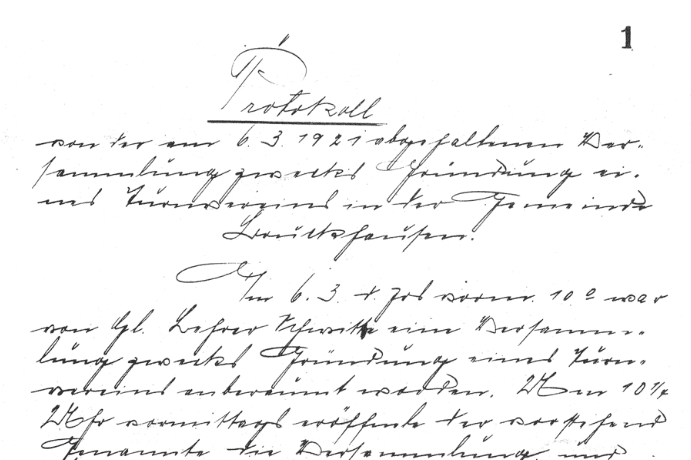 1
Protokoll
von der am 6. 3. 1921 abgehaltenen Ver-
sammlung zwecks Gründung ei-
nes Turnvereins in der Gemeinde
Bruckhausen.
Am 6. 3. d. Jrs vorm. 10 a war
von Hl. Lehrer Schmitt eine Versamm-
lung zwecks Gründung eines Turn-
vereins anberaumt worden. Um 10 1/4
Uhr vormittags eröffnete der vorstehend
Genannte die Versammlung und